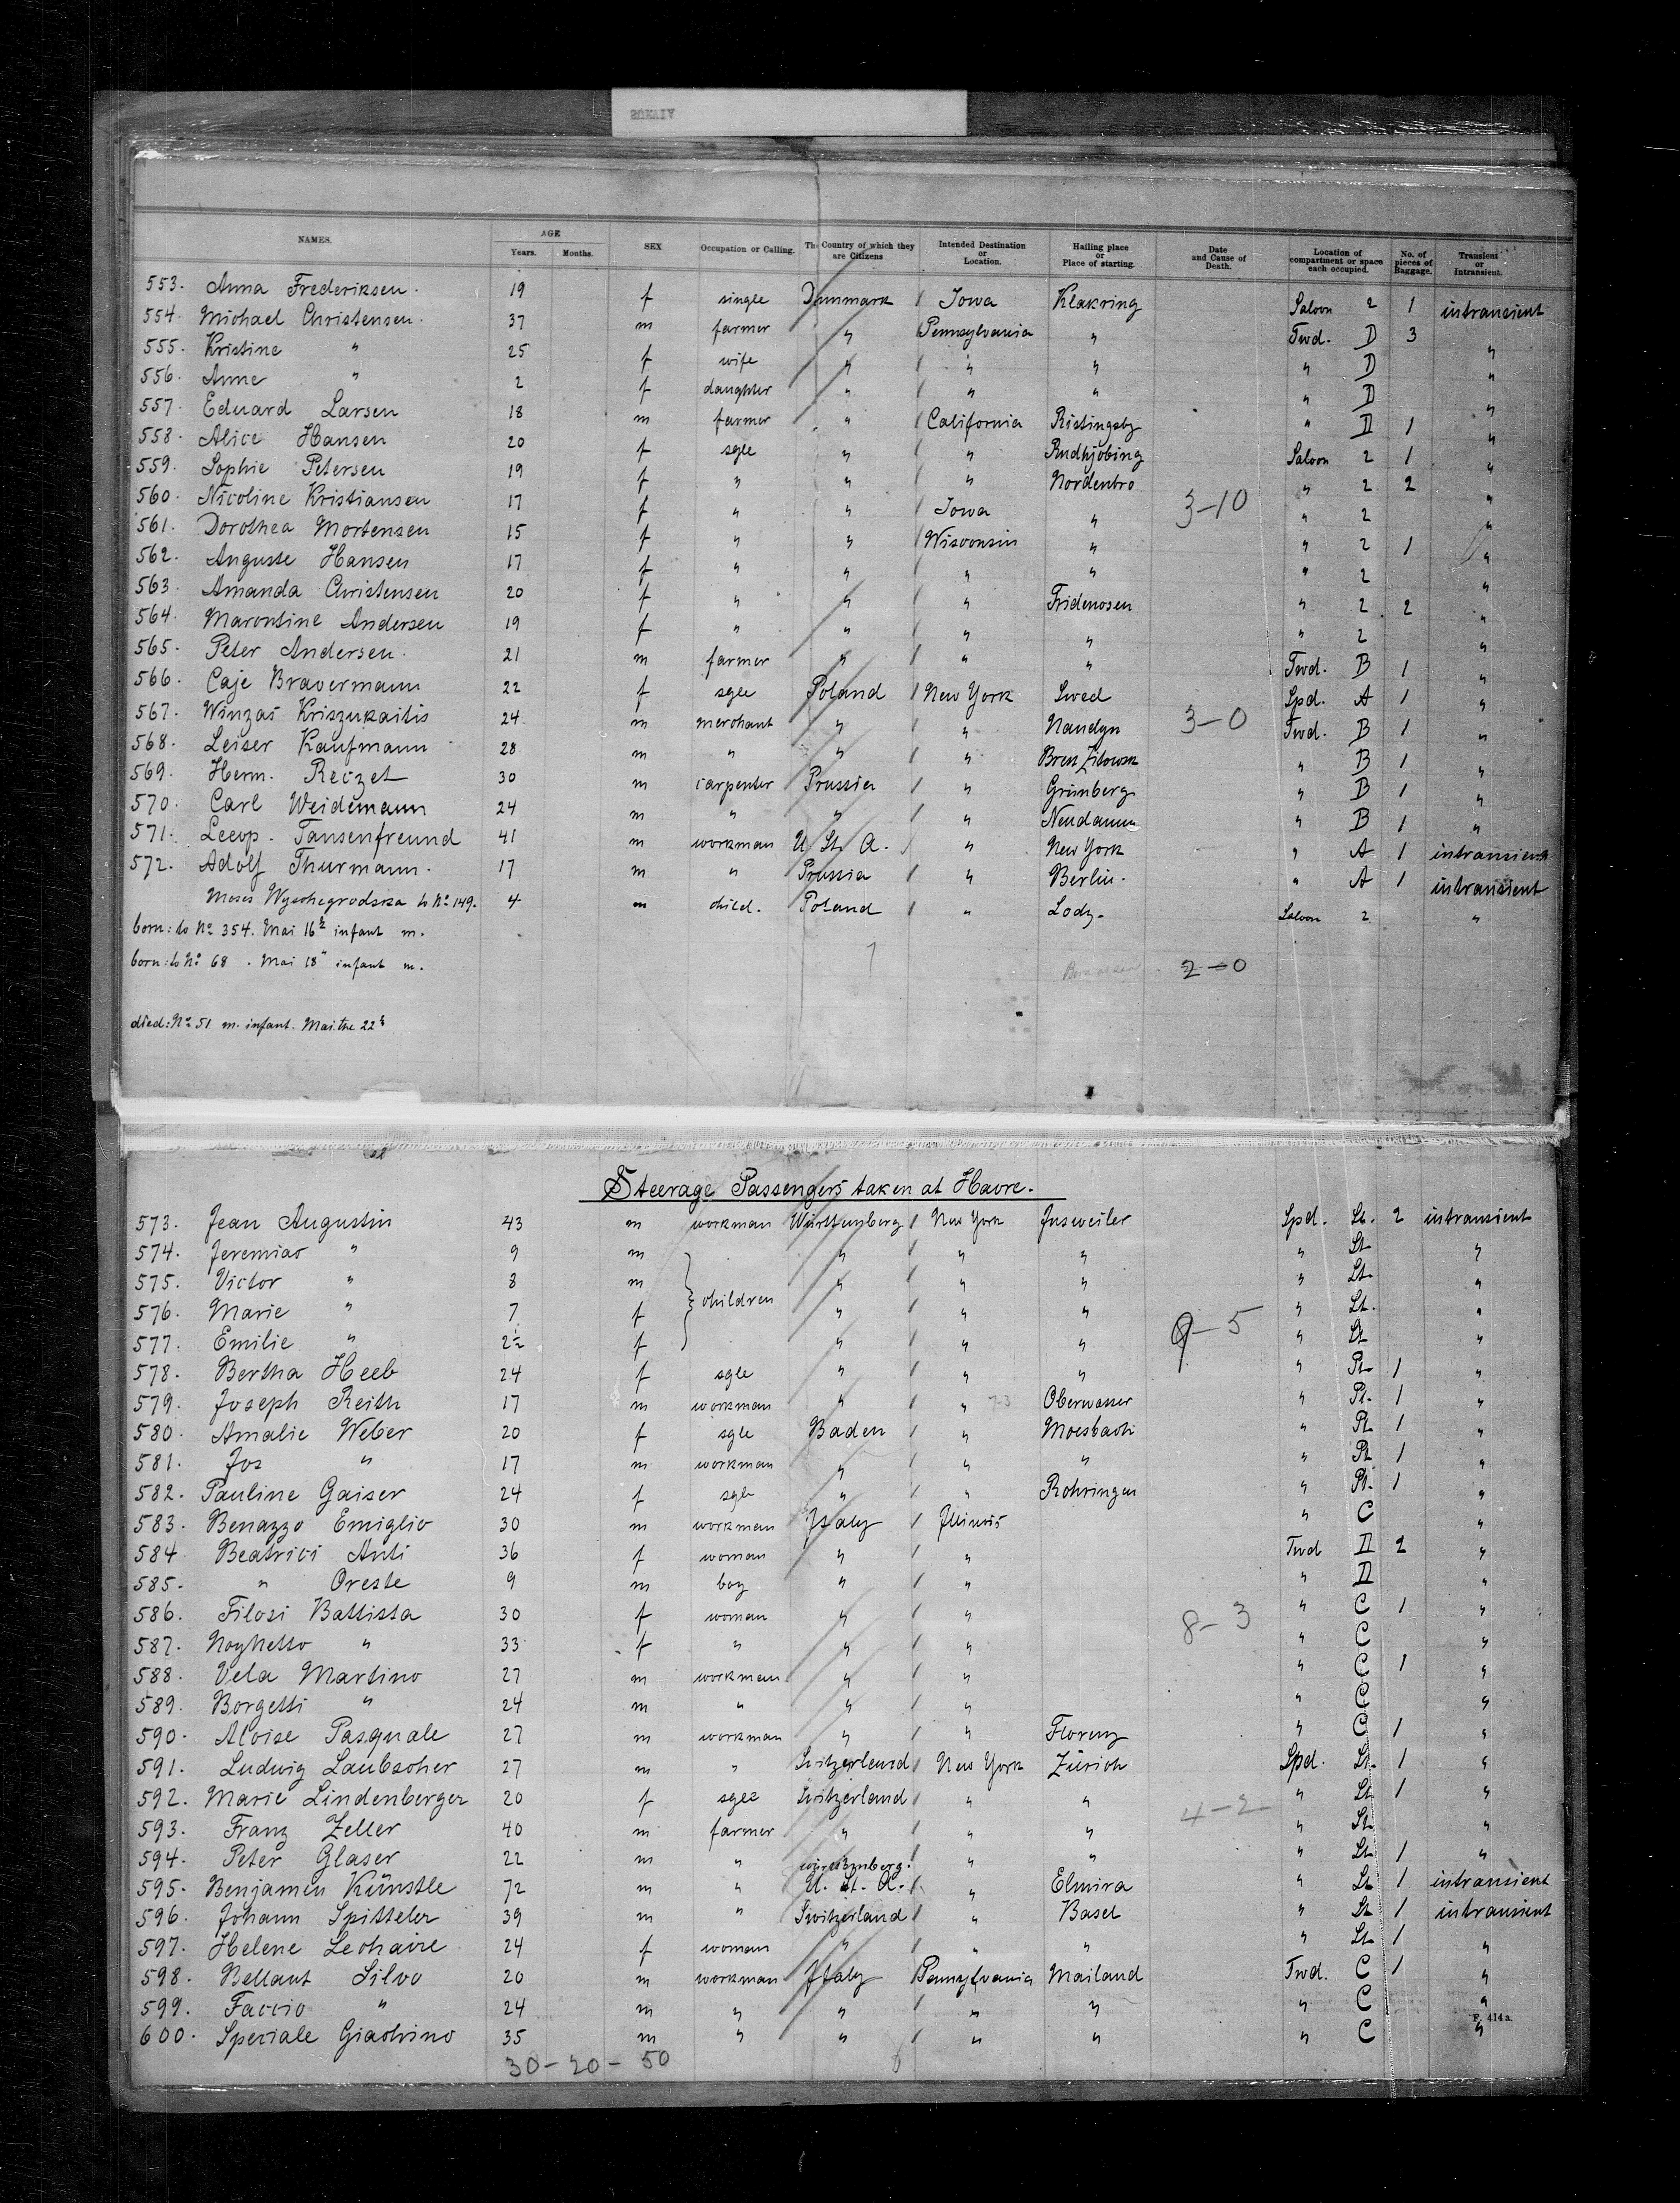 NAMES. AGE Years. Months. SEX Occupation or Calling. The Country of which they are Citizens Intended Destination or Location. Hailing place or Place of starting. Date and Cause of Death. Location of compartment or space each occupied. No. of pieces of Baggage. Transient or Intransient.
553. Anna Frederiksen. 19 f single Dannmark / Iowa Klakring Saloon 2 1 intransient
554. Michael Christensen. 37 m farmer " / Pennsylvania " Twd. D 3 "
555. Kristine " 25 f wife " / " " " D "
556. Anne " 2 f daughter " / " " " D "
557. Eduard Larsen 18 m farmer " / California Ristingsby " D 1 "
558. Alice Hansen 20 f sgle " / " Rudhjöbing Saloon 2 1 "
559. Sophie Petersen 19 f " " / " Nordenbro " 2 2 "
560. Nicoline Kristiansen 17 f " " / Iowa " 3-10 " 2 "
561. Dorothea Mortensen 15 f " " / Wisconsin " " 2 1 "
562. Auguste Hansen 17 f " " / " " " 2 "
563. Amanda Christensen 20 f " " / " Fridenosen " 2 2 "
564. Marentine Andersen 19 f " " / " " " 2 "
565. Peter Andersen. 21 m farmer " / " " Twd. B 1 "
566. Caje Bravermann 22 f sgle Poland / New York Swed Spd. A 1 "
567. Winzas Kriszukaitis 24 m merchant " / " Naudyn 3-0 Twd. B 1 "
568. Leiser Kaufmann 28 m " " / " " B 1 "
569. Herm. Reczet 30 m carpenter Prussia / " Grünberg " B 1 "
570. Carl Weidemann 24 m " " / " Neudamm " B 1 "
571. Leop. Tansenfreund 41 m workman U. St. A. / " New York " A 1 intransient
572. Adolf Thurmann. 17 m " Prussia / " Berlin. " A 1 intransient
Moses Wyschegrodska to No 149. 4 m child. Poland / " Lodz. Saloon 2 "
born: to No 354. Mai 16th infant m.
born: to No 68. Mai 18" infant m. Born at sea 2-0
died: No 51 m. infant. Mai the 22th
Steerage Passengers taken at Havre.
573. Jean Augustin 43 m workman Württemberg / New York Jusweiler Spd. St. 2 intransient
574. Jeremias " 9 m " / " " " St. "
575. Victor " 8 m " / " " " St. "
576. Marie " 7 f children " / " " " St. "
577. Emilie " 2½ f " / " " 9-5 " St. "
578. Bertha Heeb 24 f sgle " / " " " Pt. 1 "
579. Joseph Reith 17 m workman " / " Oberwasser " Pt. 1 "
580. Amalie Weber 20 f sgle Baden / " Moesbach " Pt. 1 "
581. Jos " 17 m workman " / " " " Pt. 1 "
582. Pauline Gaiser 24 f sgle " / " Rohringen " Pt. 1 "
583. Benazzo Emiglio 30 m workman Italy / Illinois " C "
584. Beatrici Anti 36 f woman " / " Twd D 2 "
585. " Oreste 9 m boy " / " " D "
586. Filosi Battista 30 f woman " / " 8-3 " C 1 "
587. Noghetto " 33 f " " / " " C "
588. Vela Martino 27 m workman " / " " C 1 "
589. Borgetti " 24 m " " / " " C "
590. Aloise Pasquale 27 m workman " / " Florenz " C 1 "
591. Ludwig Laubscher 27 m " Switzerland / New York Zürich Spd. St. 1 "
592. Marie Lindenberger 20 f sgle Switzerland / " " 4-2 " St. 1 "
593. Franz Zeller 40 m farmer " / " " " St. "
594. Peter Glaser 22 m " württemberg. " " " St. 1 "
595. Benjamin Künstle 72 m " U. St. A. / " Elmira " St. 1 intransient
596. Johann Spitteler 39 m " Switzerland / " Basel " St. 1 intransient
597. Helene Lechaire 24 f woman " / " " " St. 1 "
598. Bellaut Silvo 20 m workman Italy / Pennsylvania Mailand Twd. C 1 "
599. Faccio " 24 m " " / " " " C "
F. 414 a.
600. Speciale Giachino 35 m " " / " " " C "
30-20-50